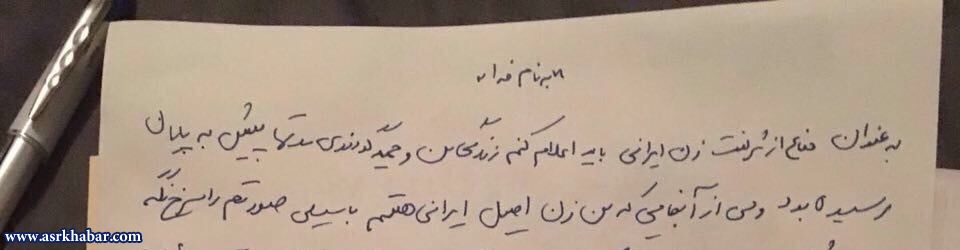 "به نام خدا"
به عنوان دفاع از شرافت زن ایرانی باید اعلام کنم زندگی من و حمید گودرزی مدتها پیش به پایان
رسیده بود ولی از آنجایی که من زن اصیل ایرانی هستم با سیلی صورتم را سرخ نگه
www.asrkhabar.com